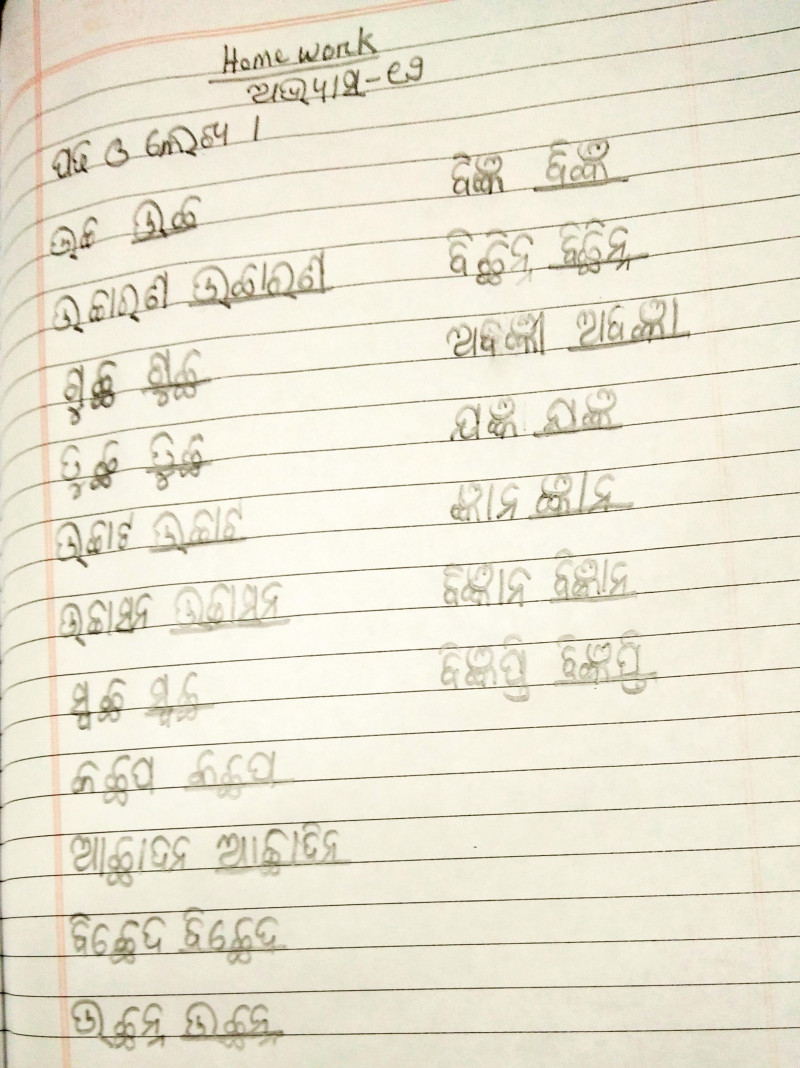 Home work
ଅଭ୍ୟାସ-୧୨
ପଢ଼ ଓ ଲେଖ ।
ଉଚ୍ଚ ଉଚ୍ଚ
ଉଚ୍ଚାରଣ ଉଚ୍ଚାରଣ
ଗୁଚ୍ଛ ଗୁଚ୍ଛ
ତୁଚ୍ଛ ତୁଚ୍ଛ
ଉଚ୍ଚାଟ ଉଚ୍ଚାଟ
ଉଚ୍ଚାସନ ଉଚ୍ଚାସନ
ସ୍ୱଚ୍ଛ ସ୍ୱଚ୍ଛ
କଚ୍ଛପ କଚ୍ଛପ
ଆଚ୍ଛାଦନ ଆଚ୍ଛାଦନ
ବିଚ୍ଛେଦ ବିଚ୍ଛେଦ
ଉଚ୍ଛନ୍ନ ଉଚ୍ଛନ୍ନ
ବିଜ୍ଞ ବିଜ୍ଞ
ବିଚ୍ଛିନ୍ନ ବିଚ୍ଛିନ୍ନ
ଅବଜ୍ଞା ଅବଜ୍ଞା
ଯଜ୍ଞ ଯଜ୍ଞ
ଜ୍ଞାନ ଜ୍ଞାନ
ବିଜ୍ଞାନ ବିଜ୍ଞାନ
ବିଜ୍ଞପ୍ତି ବିଜ୍ଞପ୍ତି